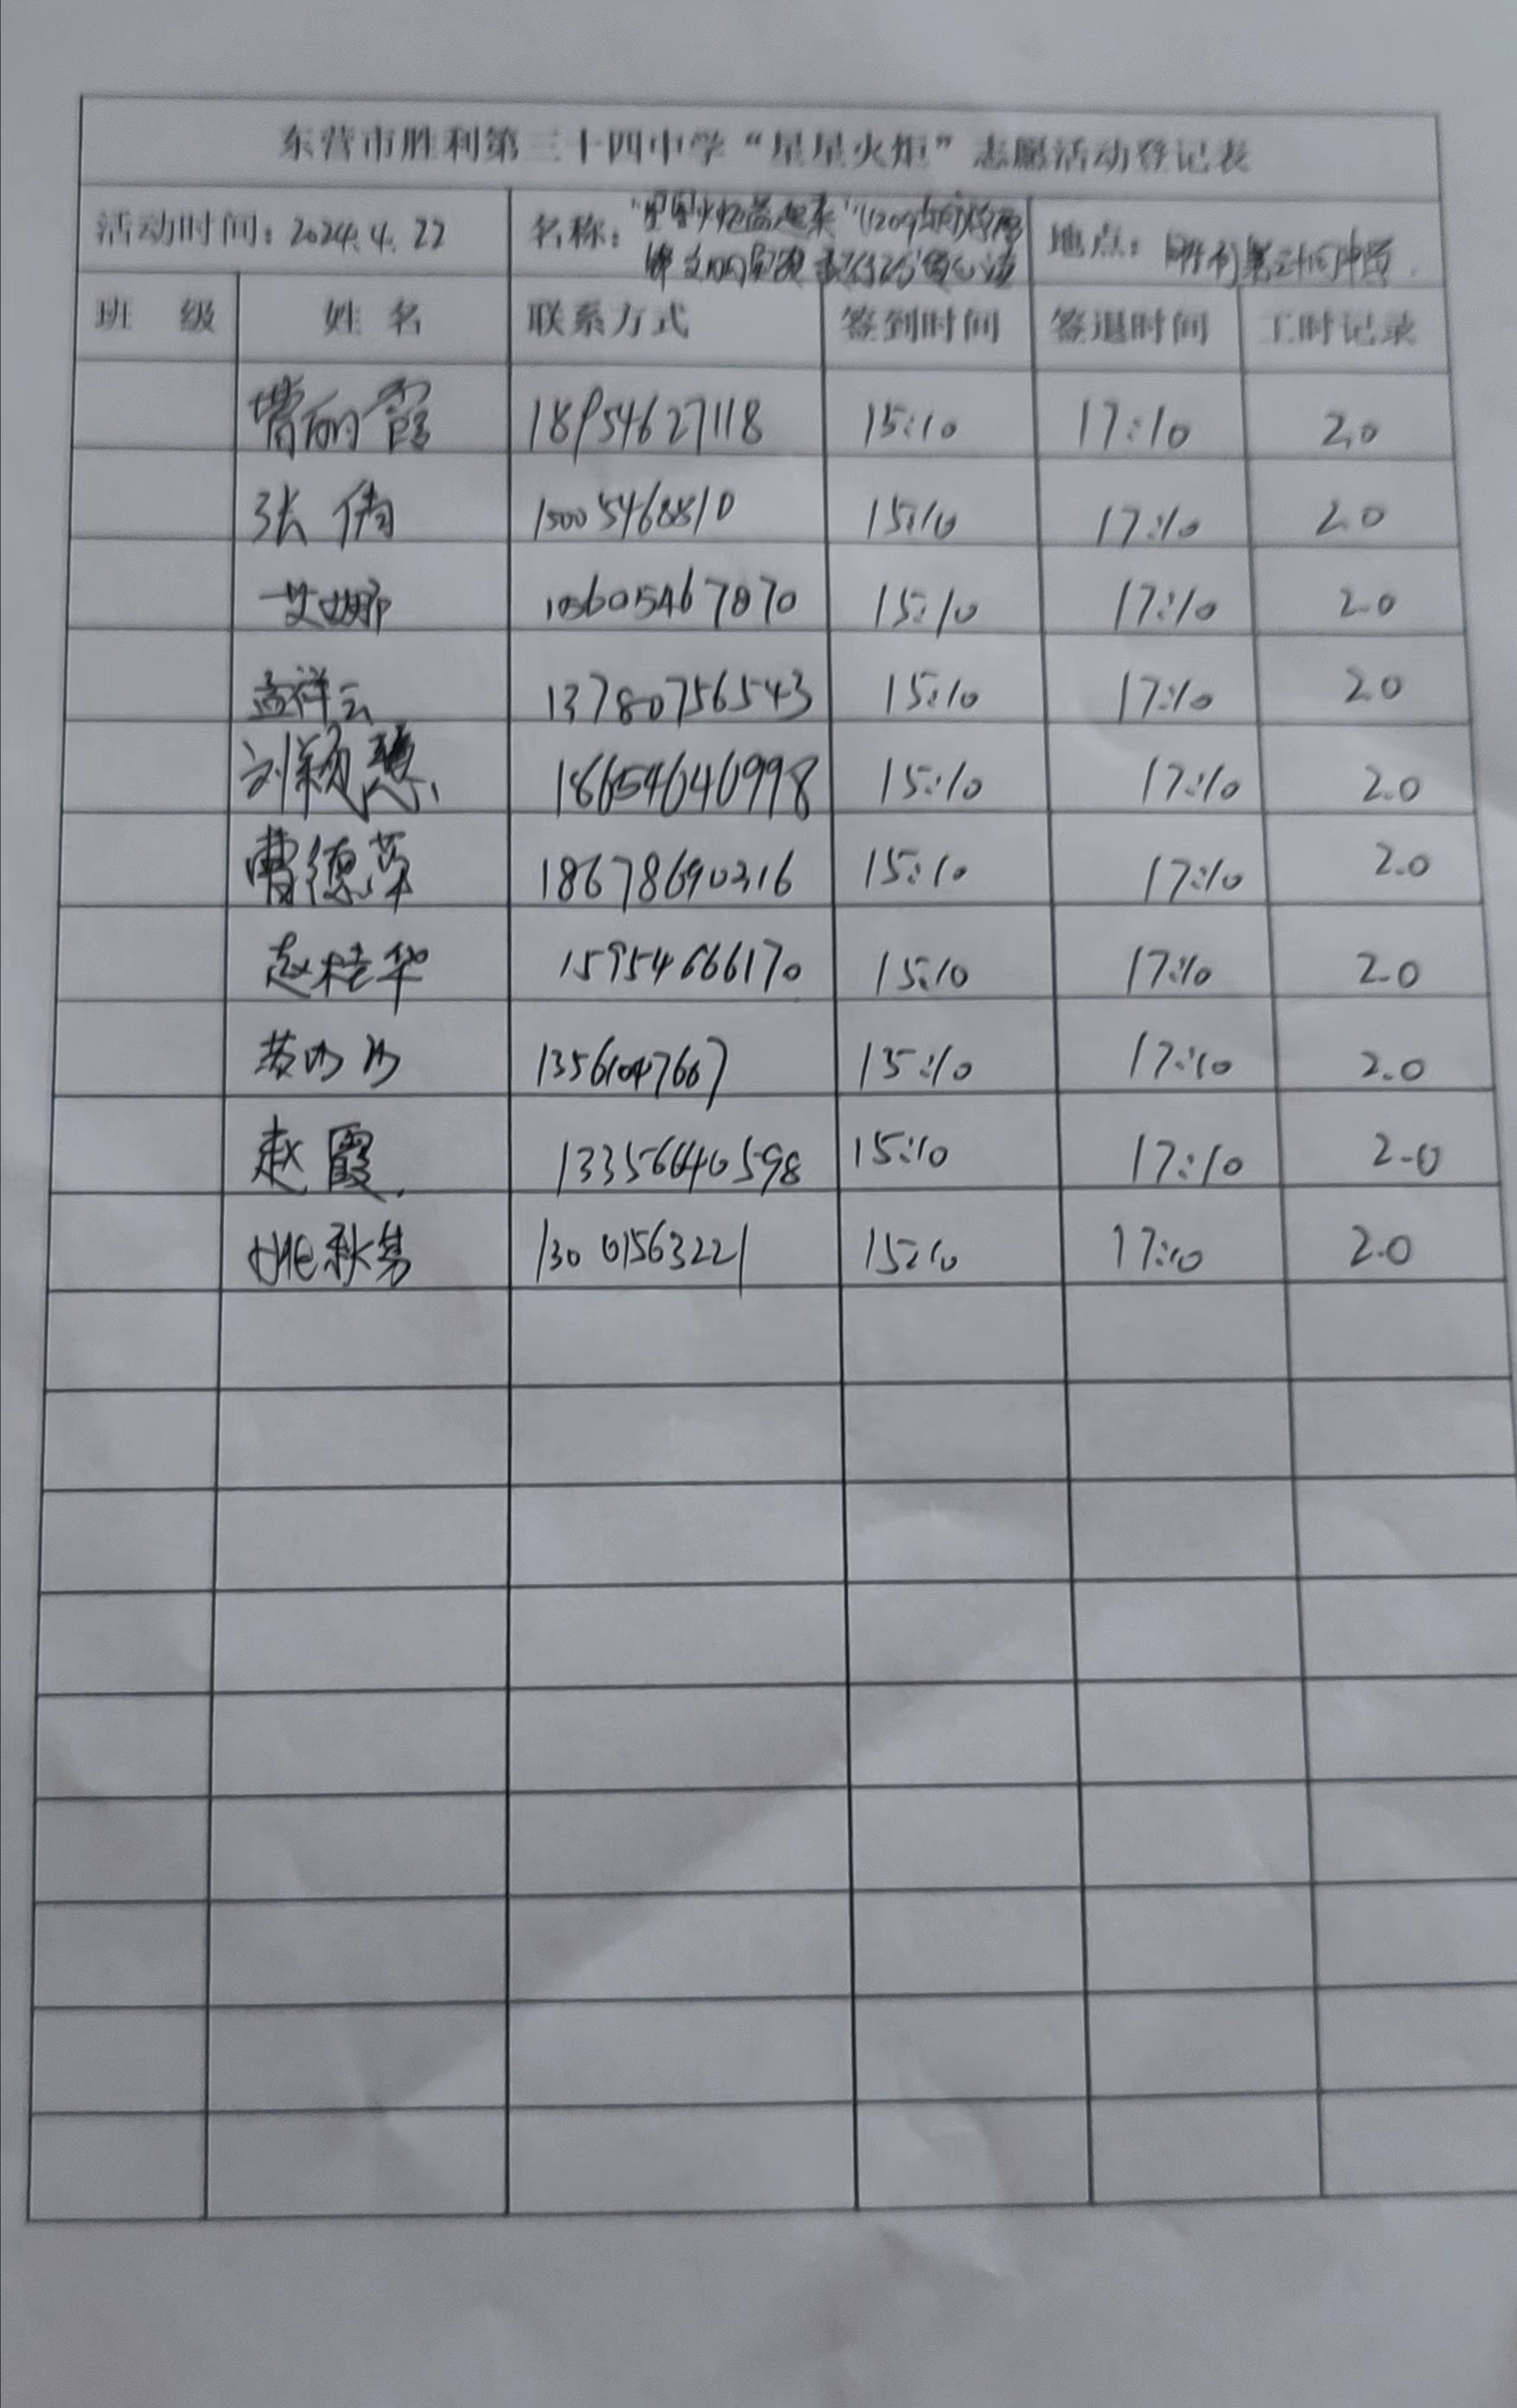 东营市胜利第三十四中学“星星火炬”志愿活动登记表
活动时间：2024.4.22 名称： 地点：
班 级 姓 名 联系方式 签到时间 签退时间 工时记录
丽霞 18954627118 15:10 17:10 2.0
张倩 15005468810 15:10 17:10 2.0
艾娜 15:10 17:10 2.0
孟祥云 13780756543 15:10 17:10 2.0
刘颖慧 18654640998 15:10 17:10 2.0
曹德荣 18678690316 15:10 17:10 2.0
赵桂华 15954666170 15:10 17:10 2.0
15:10 17:10 2.0
赵霞 13356640598 15:10 17:10 2.0
姚秋芬 13001563221 15:10 17:10 2.0